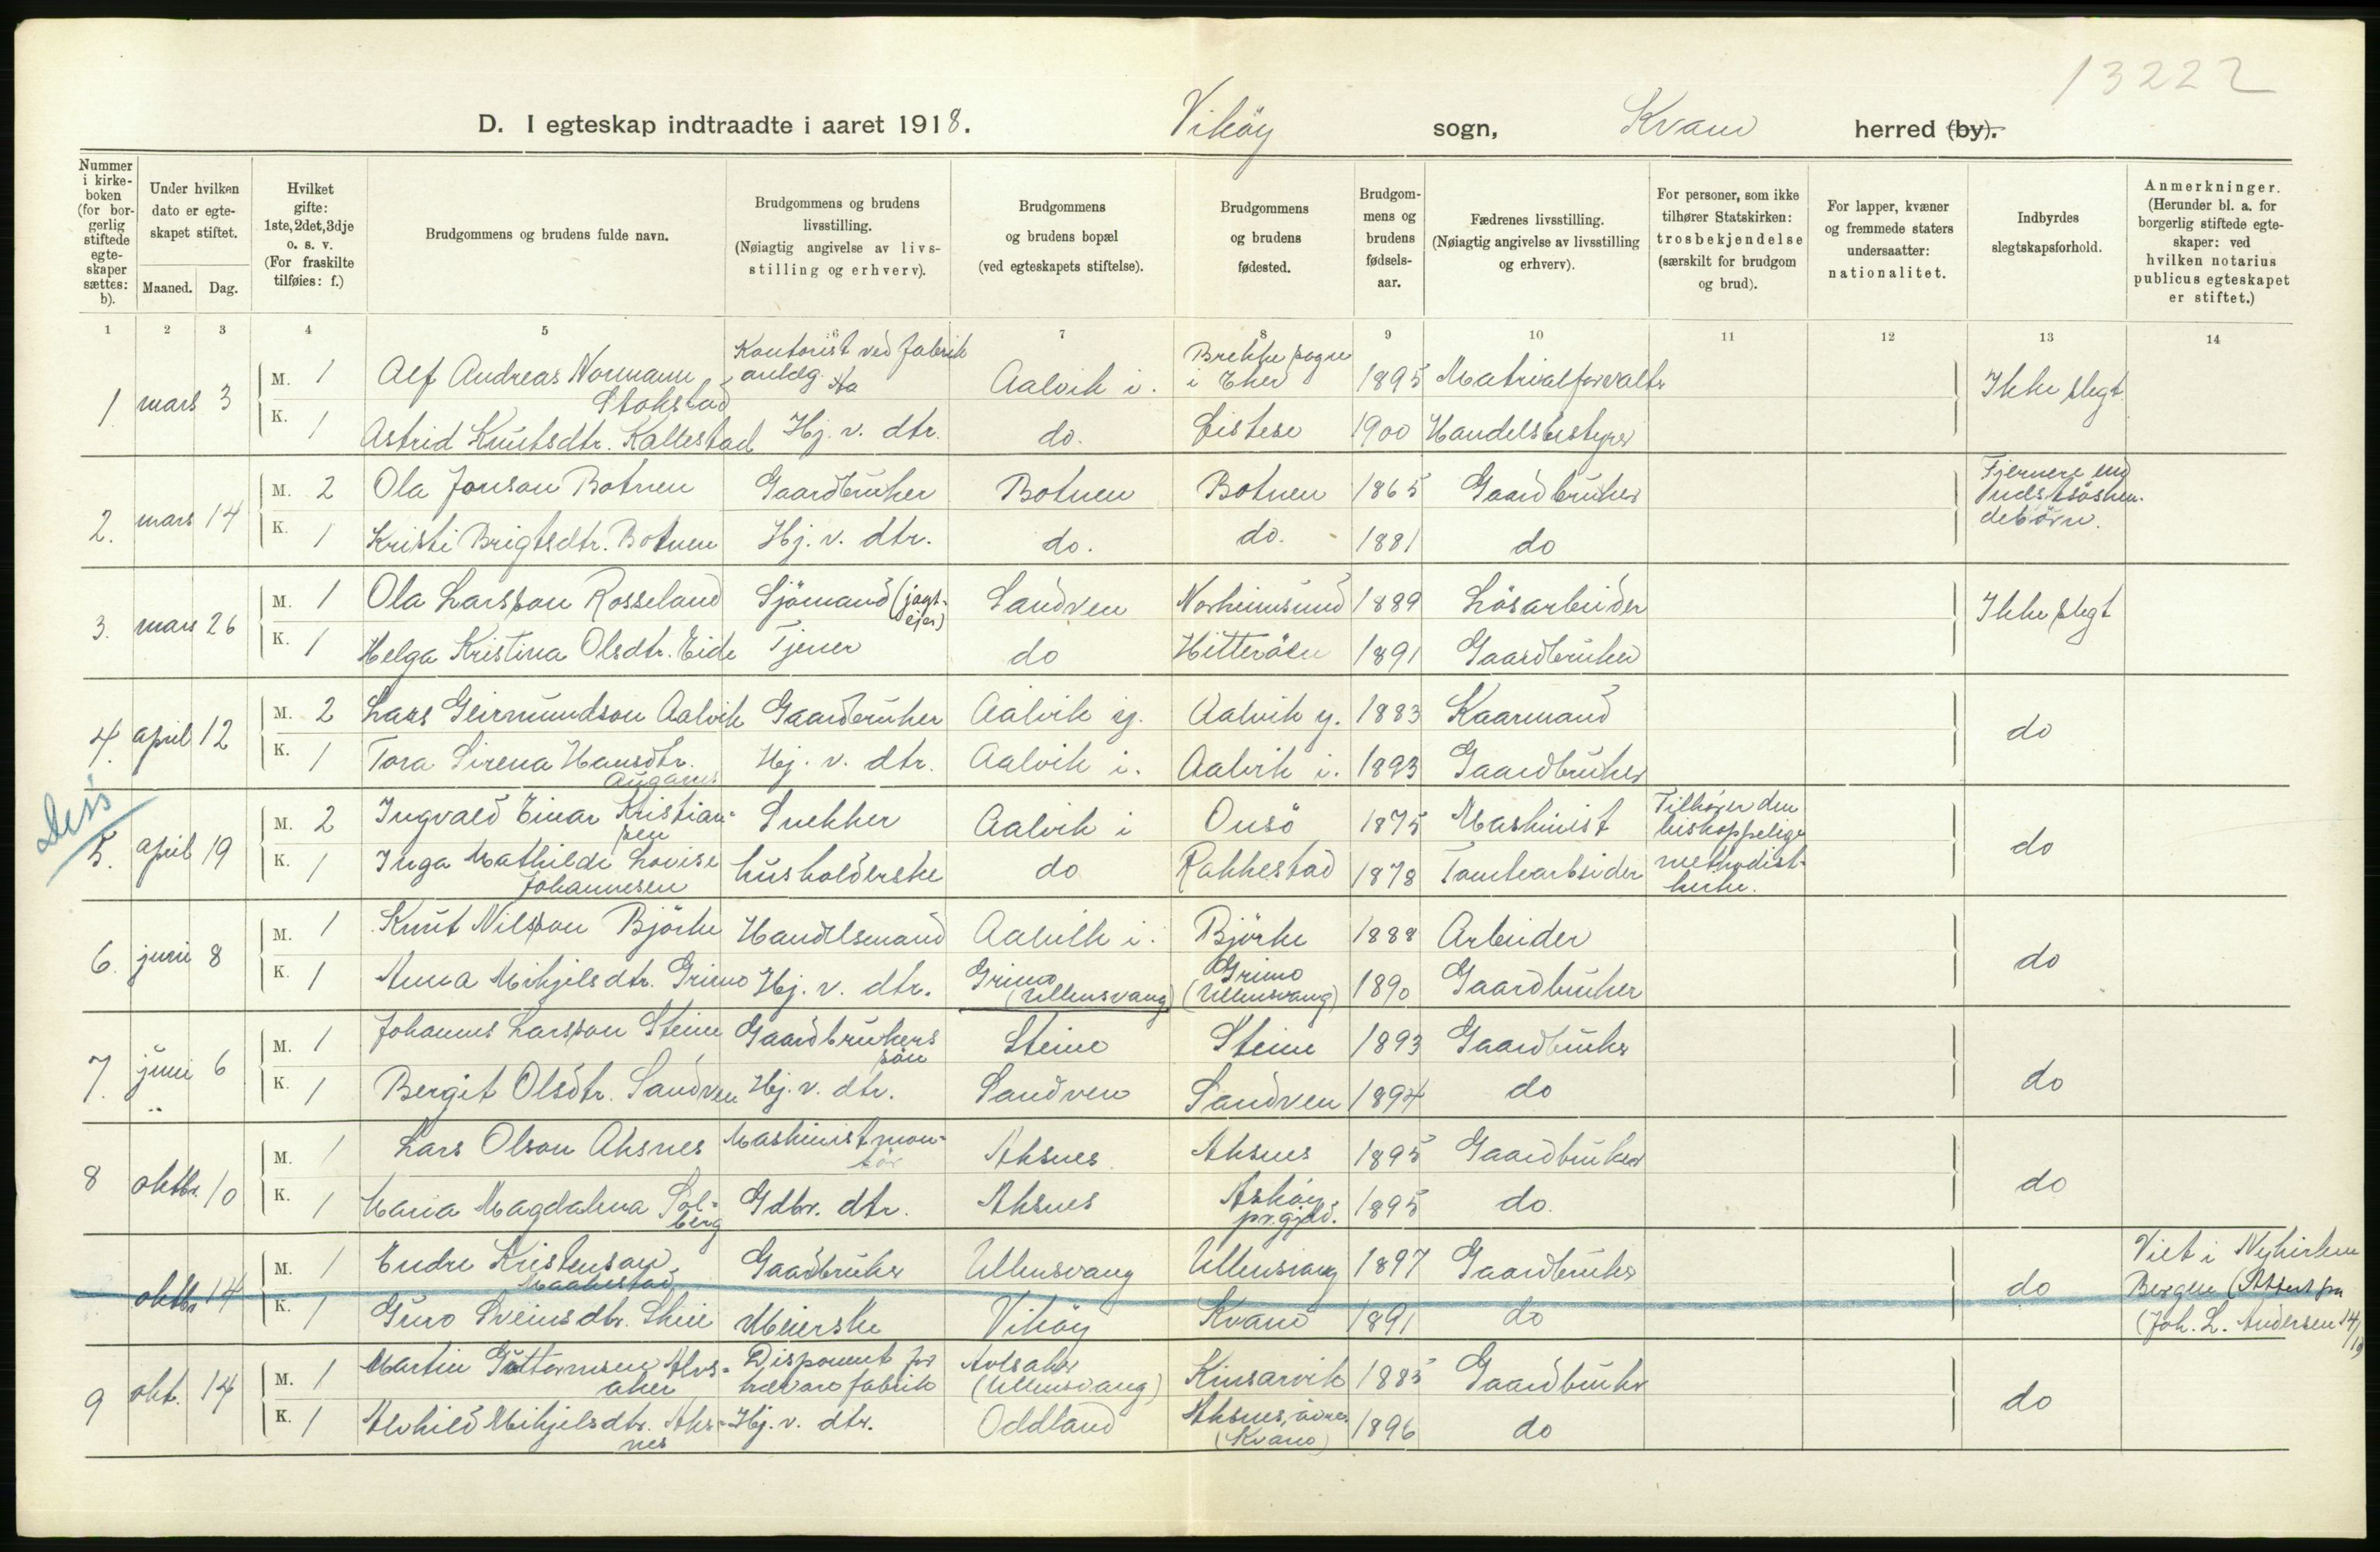 13222
D. I egteskap indtraadte i aaret 1918. Viköy sogn, Kvam herred (by).
Nummer i kirkeboken (for borgerlig stiftede egteskaper sættes: b).
Under hvilken dato er egteskapet stiftet.
Maaned. Dag.
Hvilket gifte: 1ste, 2det, 3dje o. s. v. (For fraskilte tilføies: f.)
Brudgommens og brudens fulde navn.
Brudgommens og brudens livsstilling. (Nøiagtig angivelse av livsstilling og erhverv).
Brudgommens og brudens bopæl (ved egteskapets stiftelse).
Brudgommens og brudens fødested.
Brudgommens og brudens fødselsaar.
Fædrenes livsstilling. (Nøiagtig angivelse av livsstilling og erhverv).
For personer, som ikke tilhører Statskirken: trosbekjendelse (særskilt for brudgom og brud).
For lapper, kvæner og fremmede staters undersaatter: nationalitet.
Indbyrdes slegtskapsforhold.
Anmerkninger. (Herunder bl. a. for borgerlig stiftede egteskaper: ved hvilken notarius publicus egteskapet er stiftet.)
1 2 3 4 5 6 7 8 9 10 11 12 13 14
1. mars 3 M. 1 Alf Andreas Normann Stokstad Kontorist ved fabrik anlæg Aalvik i. Brekke sogn i Eker 1895 Matrialforvaltr Ikke slegt
K. 1 Astrid Knutsdtr. Kallestad Hj. v. dtr. do. Øistese 1900 Handelsbestyrer
2. mars 14 M. 2 Ola Jonson Botnen Gaardbruker Botnen Botnen 1865 Gaardbruker Fjernere end næstsøskendebörn.
K. 1 Kristi Brigtsdtr. Botnen Hj. v. dtr. do. do. 1881 do
3. mars 26 M. 1 Ola Larsson Rosseland Sjömand (jagteier) Sandven Norheimsund 1889 Lösarbeider Ikke slegt
K. 1 Helga Kristina Olsdtr. Eide Tjener do Hitteröen 1891 Gaardbruker
4. april 12 M. 2 Lars Geirmundson Aalvik Gaardbruker Aalvik y. Aalvik y. 1883 Kaarmand do
K. 1 Tora Sirena Hansdtr. Augarnes Hj. v. dtr. Aalvik i. Aalvik i. 1893 Gaardbruker
Diss
5. april 19 M. 2 Ingvald Einar Kristiansen Snekker Aalvik i Onsö 1875 Maskinist Tilhører den biskoppelige methodistkirke. do
K. 1 Inga Mathilde Lovise Johannesen husholderske do Rakkestad 1878 Tomtearbeider
6. juni 8 M. 1 Knut Nilsson Björke Handelsmand Aalvik i. Björke 1888 Arbeider do
K. 1 Anna Mikjelsdtr. Grimo Hj. v. dtr. Grimo (Ullensvang) Grimo (Ullensvang) 1890 Gaardbruker
7. juni 6 M. 1 Johannes Larsson Steine Gaardbrukers sön Steine Steine 1893 Gaardbruker do
K. 1 Bergit Olsdtr. Sandven Hj. v. dtr. Sandven Sandven 1894 do
8 oktbr. 10 M. 1 Lars Olson Aksnes Maskinistmontör Aksnes Aksnes 1895 Gaardbruker do
K. 1 Maria Magdalena Solberg Gdbr. dtr. Aksnes Asköy pr.gjeld. 1895 do.
oktbr 14 M. 1 Endre Kristensen Maakestad Gaardbruker Ullensvang Ullensvang 1897 Gaardbruker do Viet i Nykirken Bergen (Attest fra (Joh. L. Andersen 14/10
K. 1 Guro Sveinsdtr. Skeie Meierske Viköy Kvam 1891 do
9 okt. 14 M. 1 Martin Guttormsen Alvsaker Disponent for trævarefabrik (Ullensvang) Kinsarvik 1885 Gaardbruker do
K. 1 Alvhild Mikjelsdtr. Aksnes Hj. v. dtr. Oddland Aksnes, övre (Kvam) 1896 do